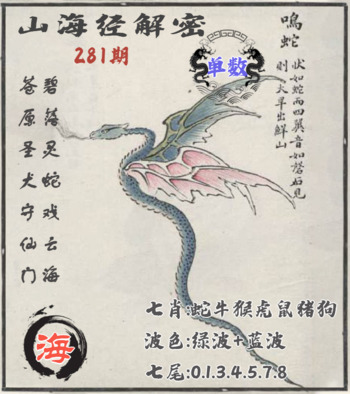 山海经解密
281期
单数
鳴蛇
状如蛇而四翼音如磬右見
則大旱出鮮山
碧落灵蛇戏云海
苍原圣犬守仙门
海
七肖:蛇牛猴虎鼠猪狗
波色:绿波+蓝波
七尾:0.1.3.4.5.7.8